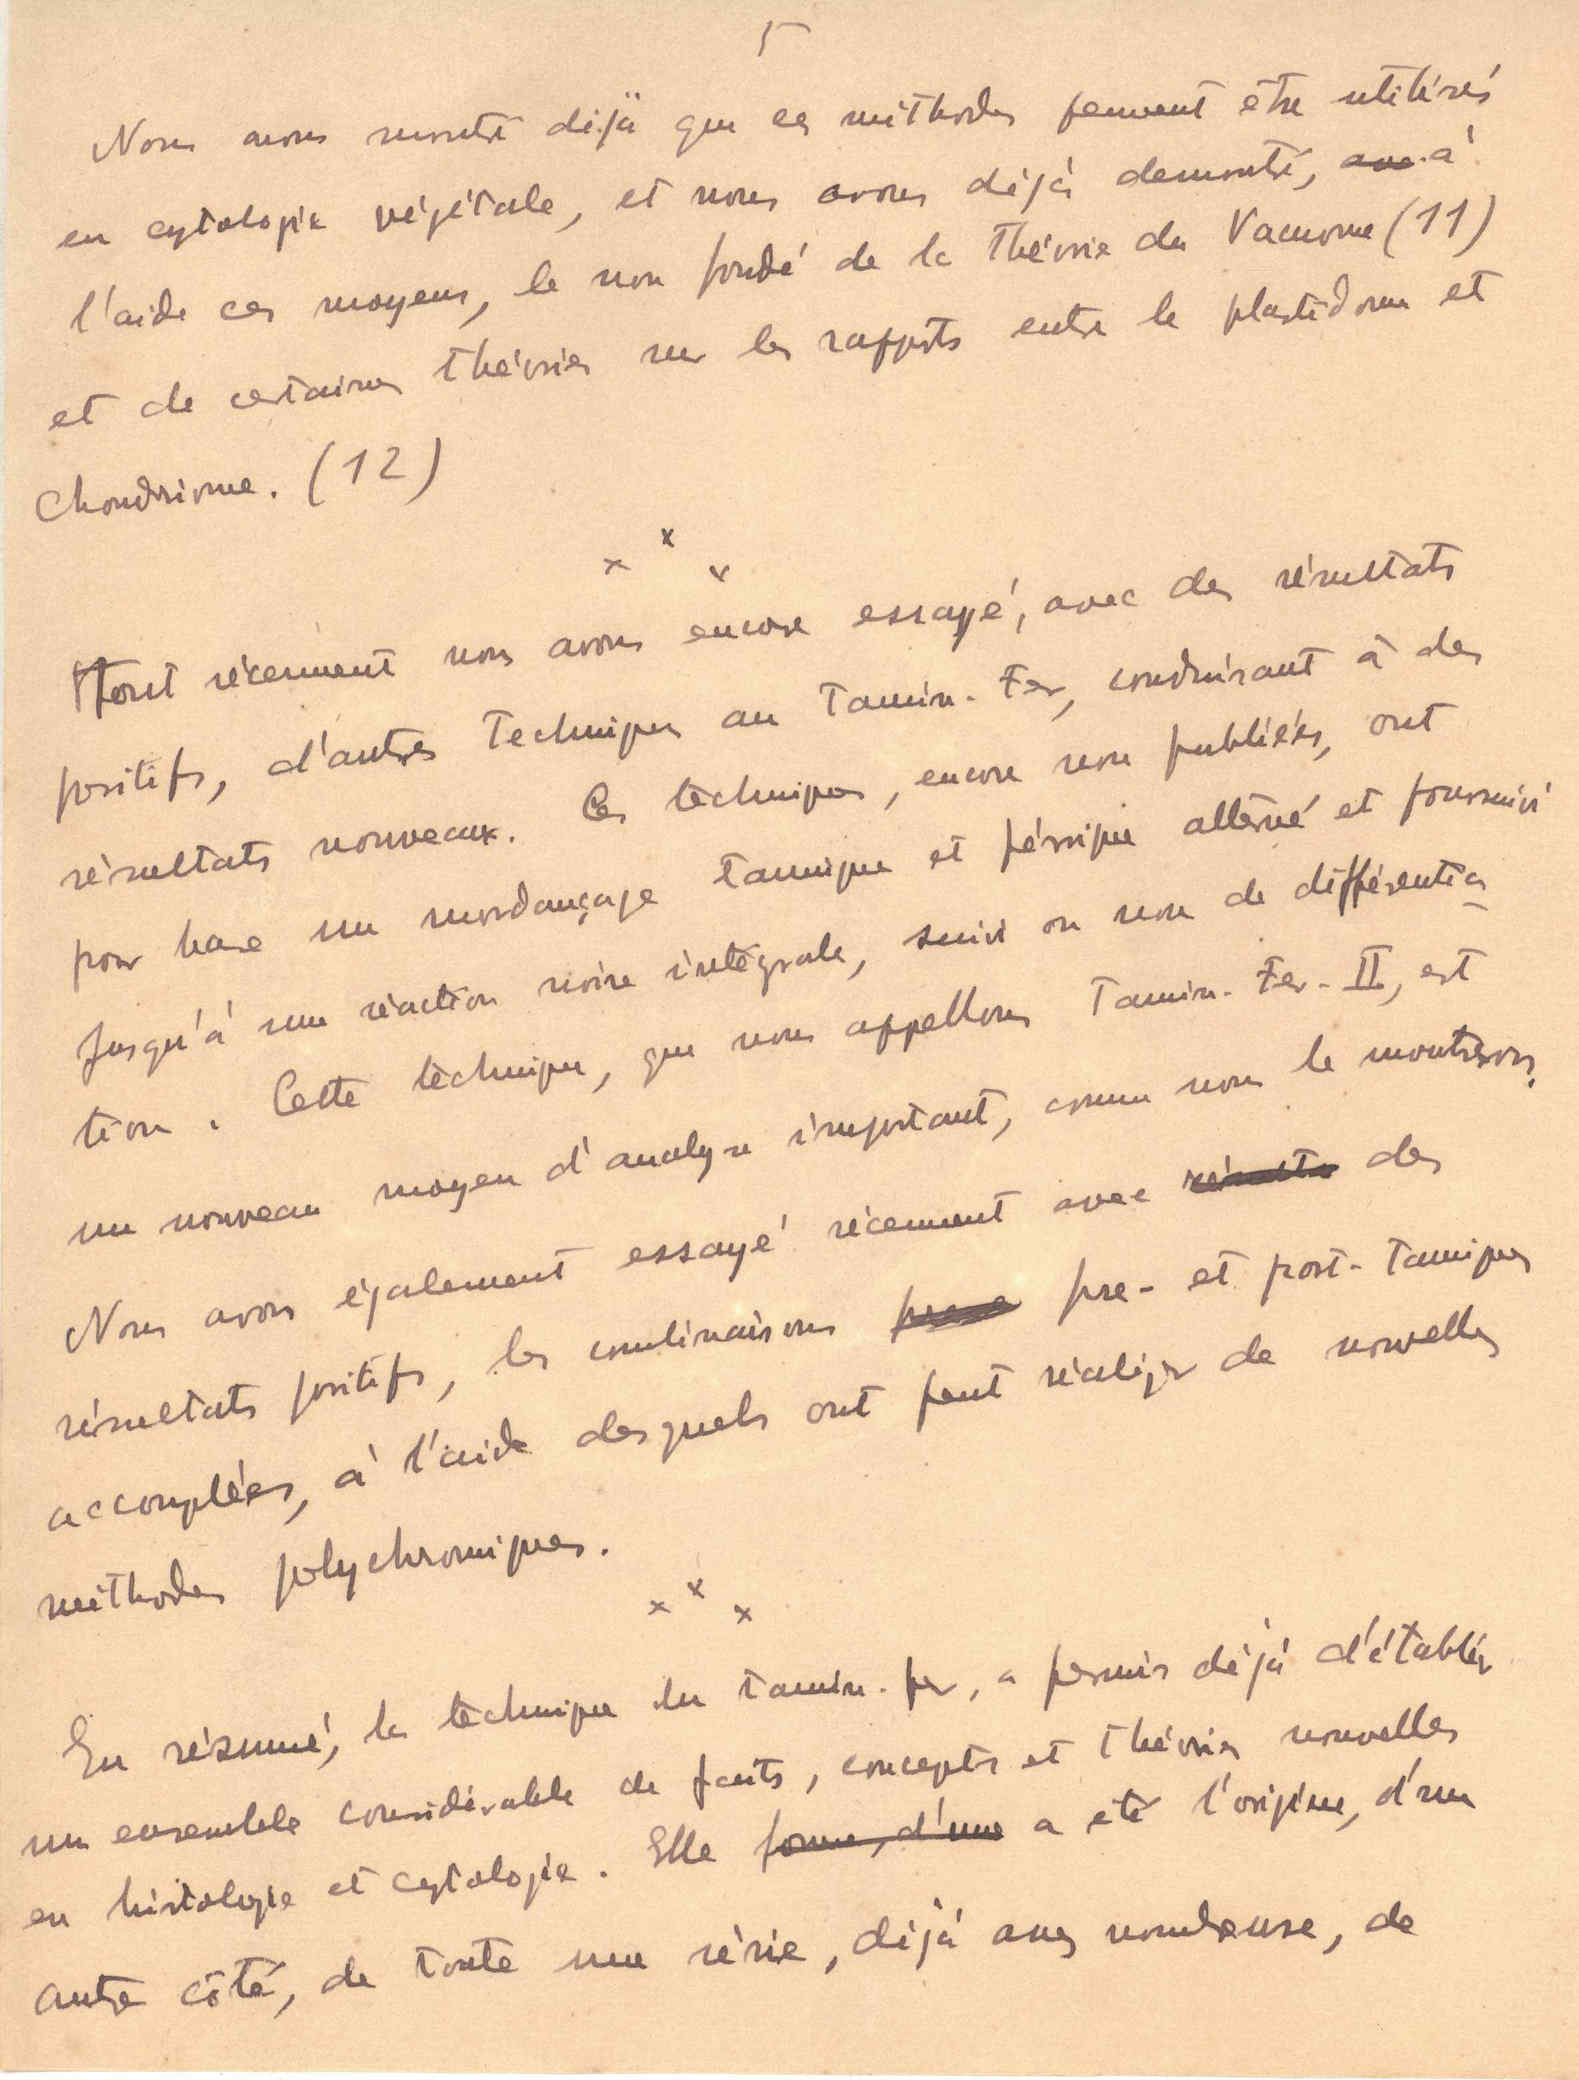 5
Nous avons montré déjà que ces méthodes peuvent être utilisés
en cytologie végétale, et nous avons déjà demontré, avec à
l'aide ces moyens, le non fondé de la théorie du Vacuome (11)
et de certaines théories sur les rapports entre le plastidome et
Chondriome. (12)
x x x
Tout récemment nous avons encore essayé, avec des résultats
positifs, d'autres techniques au Tannin-Fer, conduisant à des
résultats nouveaux. Ces techniques, encore non publiées, ont
pour base un mordançage tannique et férrique alterné et poursuivi
jusqu'à une réaction noire intégrale, suivi ou non de différentia
tion. Cette technique, que nous appellons Tannin-Fer-II, est
un nouveau moyen d'analyse important, comme nous le montrerons.
Nous avons également essayé récemment avec résults des
résultats positifs, les combinaisons pre- et post-tanniques
accouplées, à l'aide desquels ont peut réaliser de nouvelles
méthodes polychromiques.
x x x
En résumé, la technique du tannin-fer, a permis déjà d'établir
un ensemble considérable de faits, concepts et théories nouvelles
en histologie et cytologie. Elle forme, d'une a été l'origine, d'un
autre côté, de toute une série, déjà assez nombreuse, de